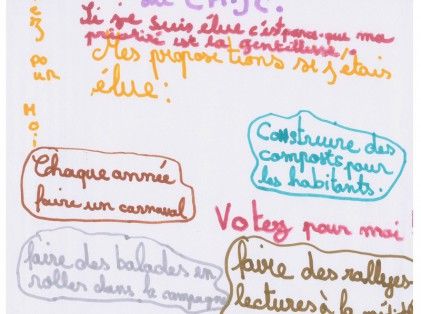 au CMJC.
Si je suis élue c'est parce que ma
priorité est la gentillesse!
Mes propositions si j'étais
élue :
pour
moi
Construire des
composts pour
les habitants.
Chaque année
faire un carnaval
Votez pour moi
faire des balades en
roller dans la campagne
faire des rallyes
lectures à la